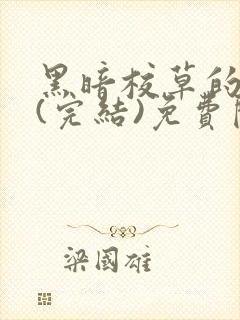 黑暗校草的
(完結)免費
梁國雄